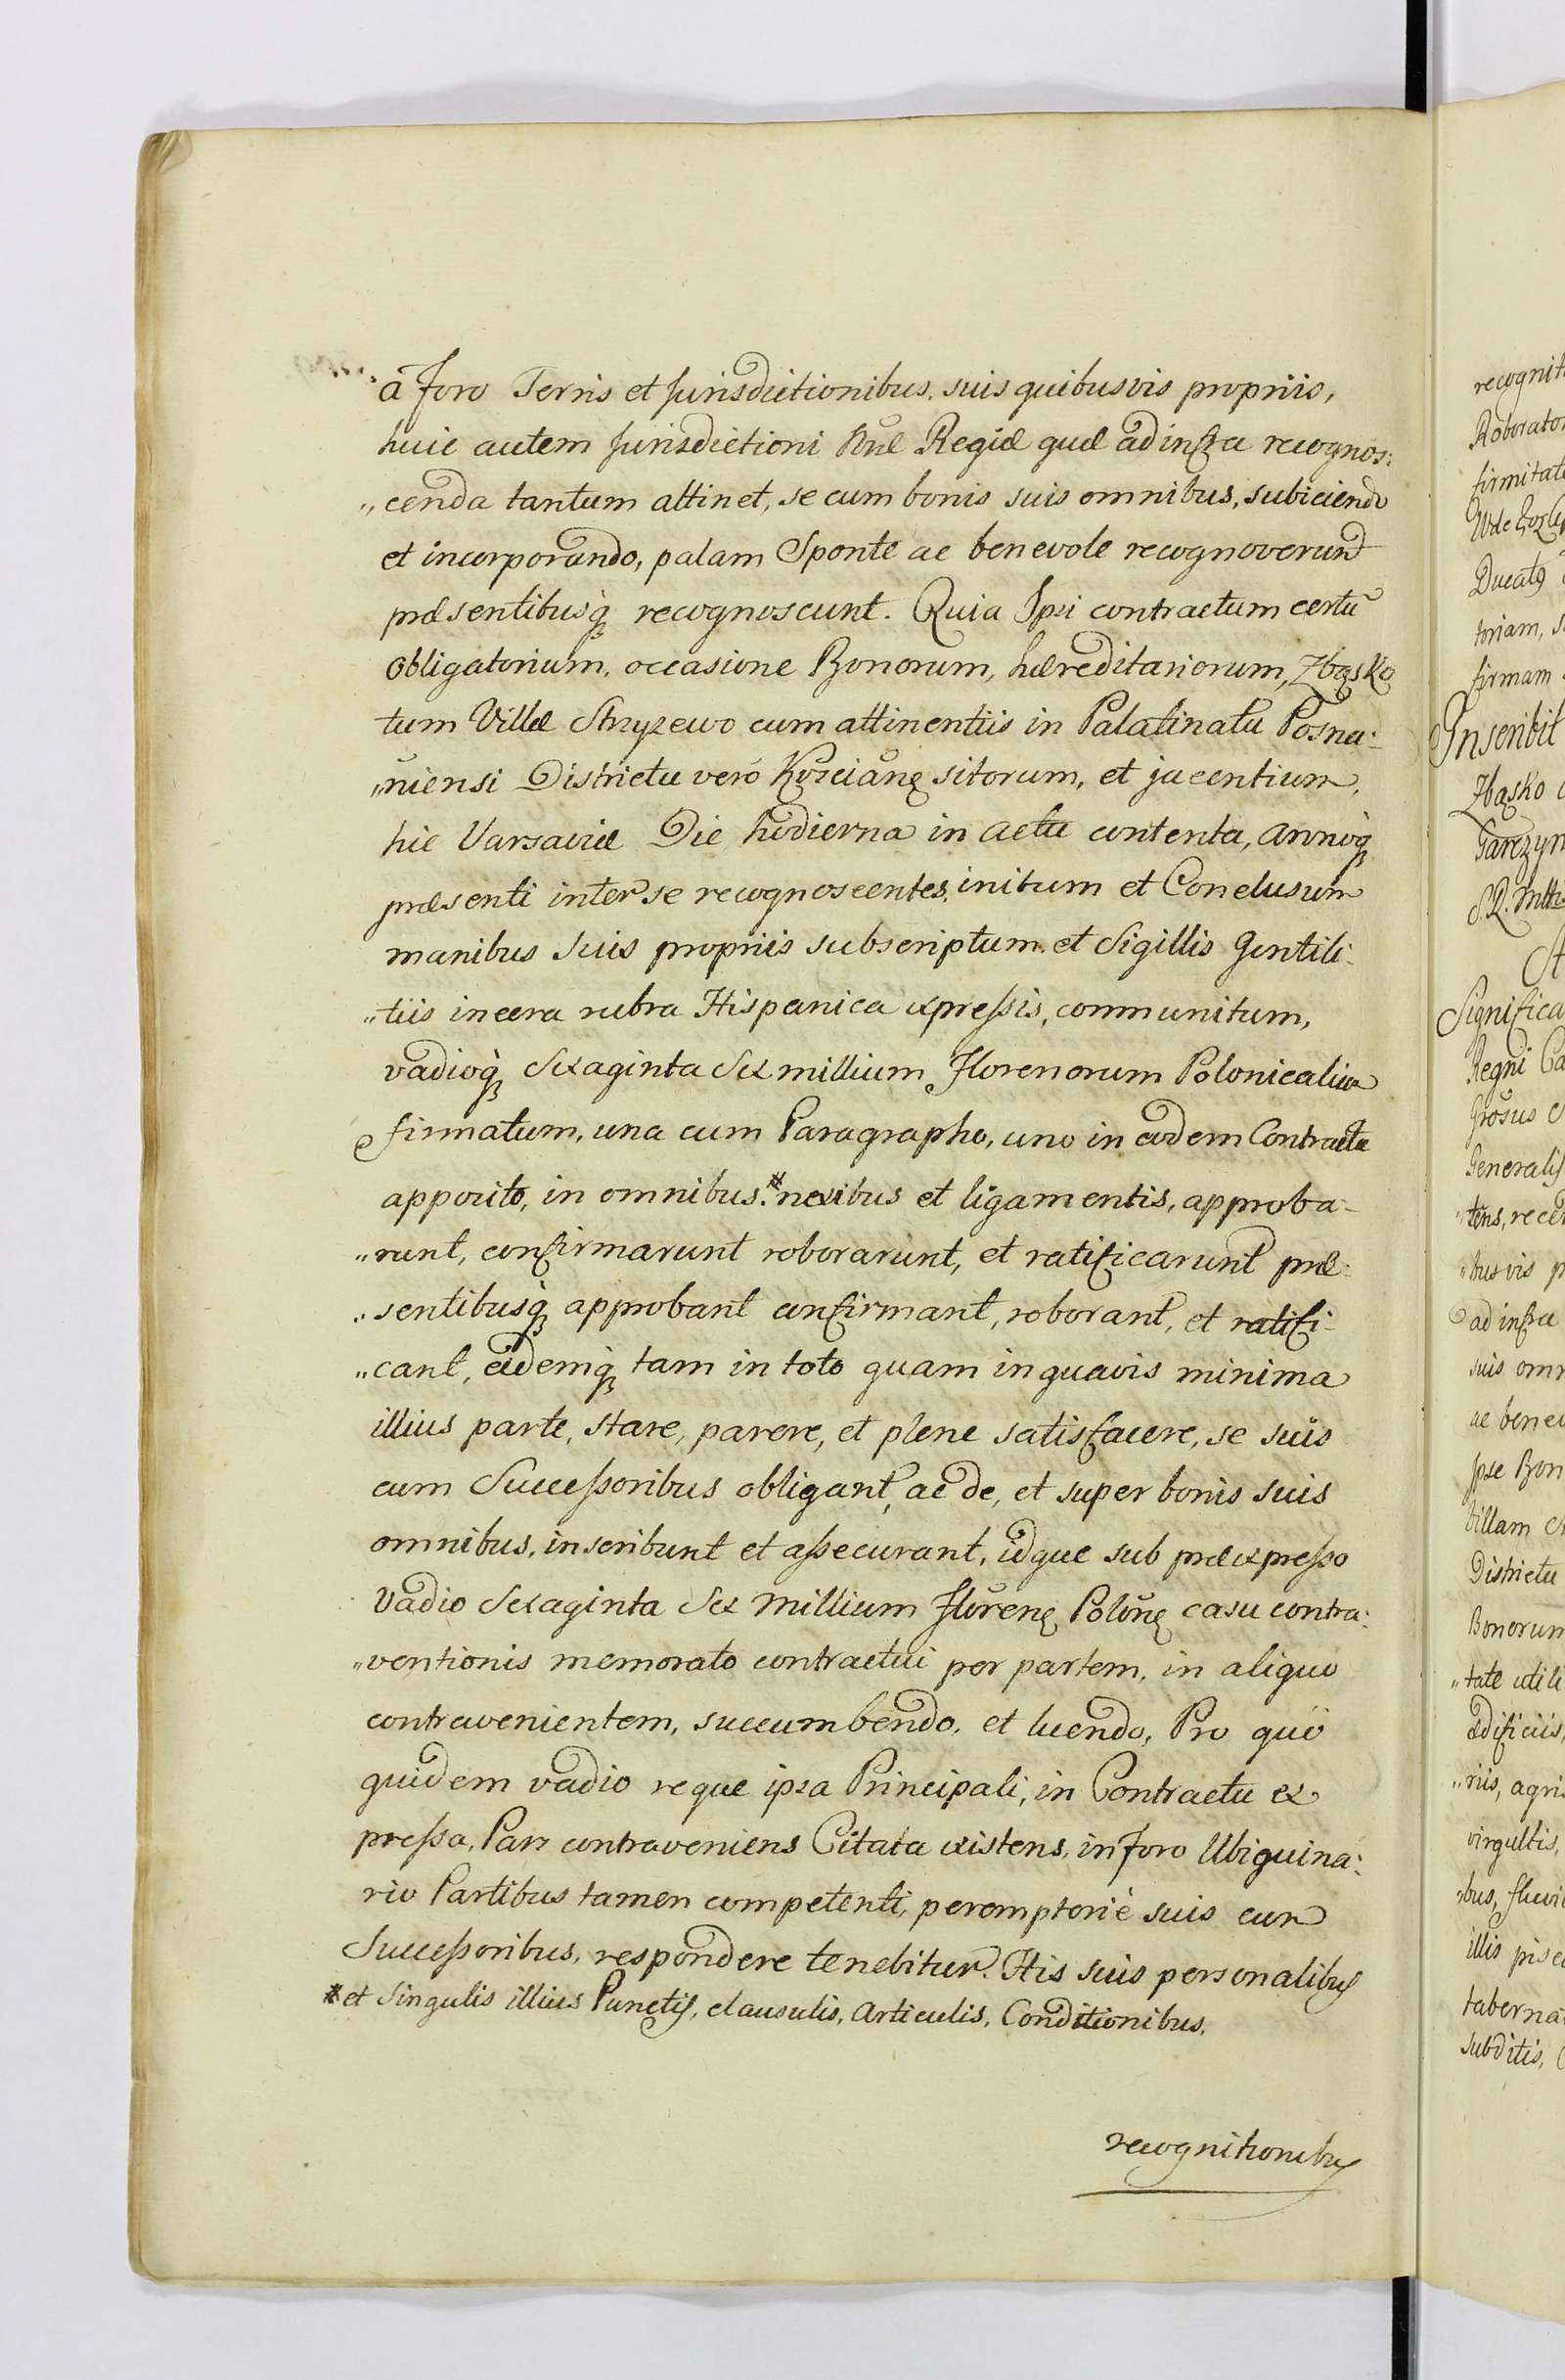 a Foro Terris et Jurisdictionibus. suis quibusvis propriis,
huic autem Jurisdictioni Regiæ quæ ad infra recognos:
„cenda tantum attinet, se cum bonis suis omnibus, subiciendo
et incorporando, palam Sponte ac benevole recognoverunt
præsentibusq̀ recognoscunt. Quia Ipsi contractum certũ
obligatorium, occasione Bonorum, hæreditariorum, Zbąsko
tum Villæ Stryzewo cum attinentiis in Palatinatu Posna:
„niensi Districtu verò Kosciãnę sitorum, et jacentium,
hic Varsaviæ Die hodierna in actu contenta, Annoq̀
præsenti inter se recognoscentes, initum et Conclusum
manibus Suis propriis subscriptum. et Sigillis Gentili:
„tiis in cera rubra Hispanica expressis, communitum,
vadioq̀ Sexaginta Sex millium Florenorum Polonicaliũ
firmatum, una cum Paragrapho, uno in eodem Contractu
apposito, in omnibus.* nexibus et ligamentis, approba-
„runt, confirmarunt roborarunt, et ratificarunt præ:
„sentibusq̀ approbant confirmant, roborant, et ratifi-
„cant, eidemq̀ tam in toto quam in quavis minima
illius parte, stare, parere, et plene satisfacere, se suis
cum Successoribus obligant, ac de, et super bonis suis
omnibus, inscribunt et assecurant, idque sub præexpresso
Vadio Sexaginta Sex Millium Florenę Polõnę casu contra:
„ventionis memorato contractui per partem, in aliquo
contravenientem, succumbendo. et luendo, Pro quo
quidem vadio reque ipsa Principali, in Contractu ex
pressa, Pars contraveniens Citata existens, in Foro Ubiquina:
rio Partibus tamen competenti, peremptoriè suis cum
Successoribus, respondere tenebitur. His suis personalibus
* et Singulis illius Punctis, clausulis, Articulis, Conditionibus.
recognitionibus
recognit
Roborator
firmitat
Ducatq
toriam, s
firmam
Inscribit
Zbąsko
Garczyn
Significa
Regni Ca
Generalis
„tens, recen
„busvis p
ad infra
suis omn
ac benev
Ipse Bon
Villam
Districtu
Bonorum
„tate utili
ædificiis,
„riis, agris
virgultis,
„bus, fluvi
illis pisc
taberna
subditis,